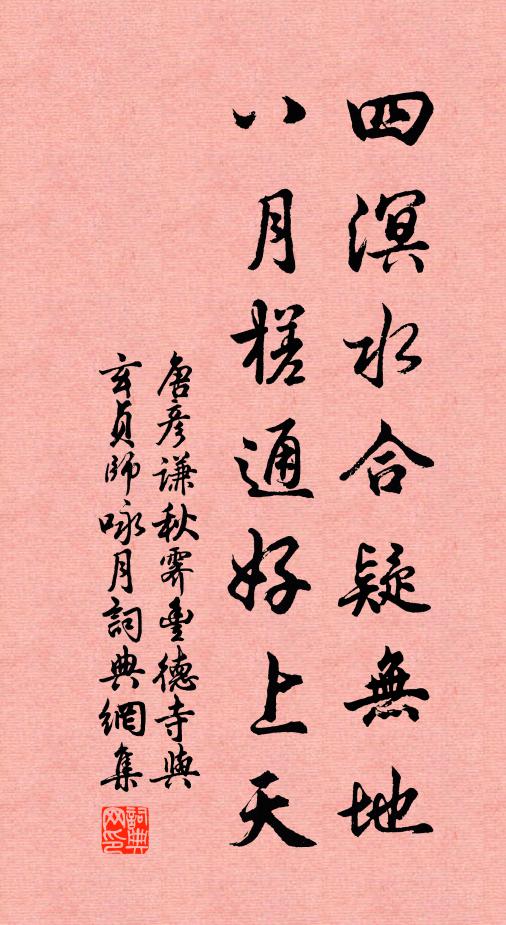 四溟水合疑無地
八月槎通好上天
唐彥謙秋霽豐德寺與
玄貞師咏月詞典網集
詞典
网印